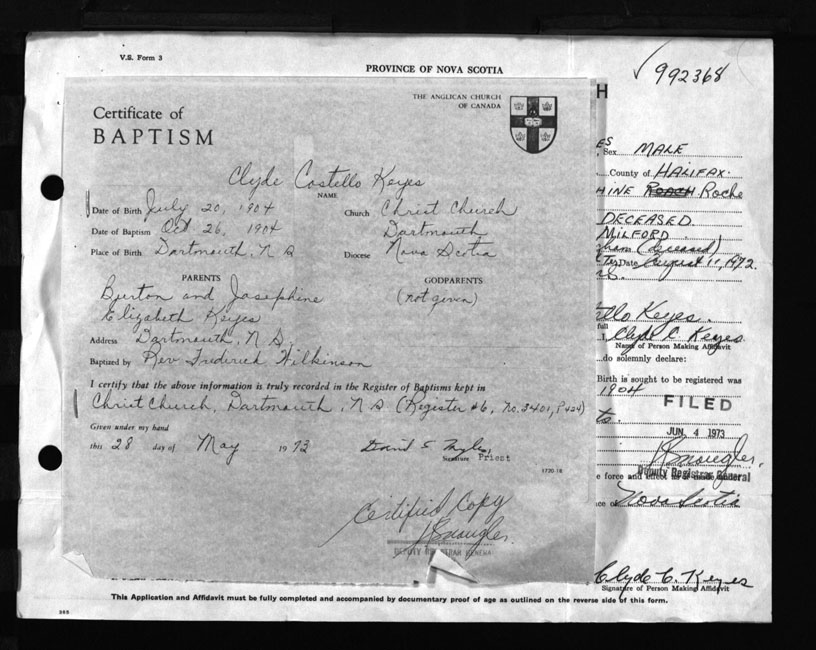 V.S. Form 3
PROVINCE OF NOVA SCOTIA
992368
H
THE ANGLICAN CHURCH
OF CANADA
Certificate of
BAPTISM
Clyde Costello Keyes
NAME
Date of Birth July 20, 1904
Church Christ Church
Date of Baptism Oct 26, 1904
Dartmouth
Place of Birth Dartmouth, N S
Diocese Nova Scotia
PARENTS
GODPARENTS
Burton and Josephine
(not given)
Elizabeth Keyes
Address Dartmouth, N S.
Baptized by Rev. Frederick Wilkinson
I certify that the above information is truly recorded in the Register of Baptisms kept in
Christ Church, Dartmouth, N S (Register #6, No. 3401, P 424)
Given under my hand
this 28 day of May 1973
David S.
Signature Priest
1770-18
Certified Copy
DEPUTY REGISTRAR GENERAL
ES
Sex MALE
County of HALIFAX.
HINE ROACH Roche
DECEASED
MILFORD
ham (deceased)
Date August 11, 1972.
ello Keyes.
full
I, Clyde C Keyes
Name of Person Making Affidavit
do solemnly declare:
Birth is sought to be registered was
1904
FILED
ts.
JUN 4 1973
Deputy Registrar General
e force and effect as
ce of Nova Scotia
Clyde C. Keyes
Signature of Person Making Affidavit
This Application and Affidavit must be fully completed and accompanied by documentary proof of age as outlined on the reverse side of this form.